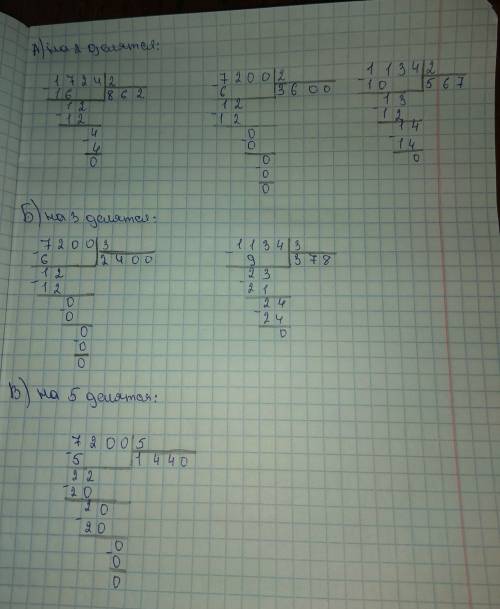 А) на 2 делятся:
-1724|2
16 862
12
-12
4
-4
0
7200|2
-6 3600
12
-12
0
-0
0
-0
0
1134|2
-10 567
13
-12
14
-14
0
Б) на 3 делятся:
-7200|3
6 2400
12
-12
0
-0
0
-0
0
-1134|3
9 378
23
-21
24
-24
0
В) на 5 делятся:
7200|5
-5 1440
22
-20
20
-20
0
-0
0